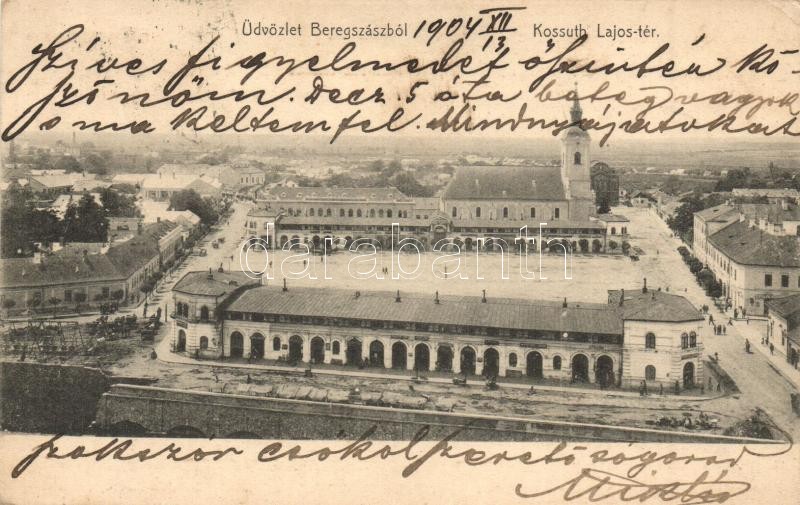 Üdvözlet Beregszászból 1904 XII/13 Kossuth Lajos-tér.
Szíves figyelmedet őszintén kö-
szönöm. Decz. 5 óta beteg vagyok
s ma keltem fel. Mindnyájatokat
darabanth
sokszor csókol szerető sógorod
Miklós